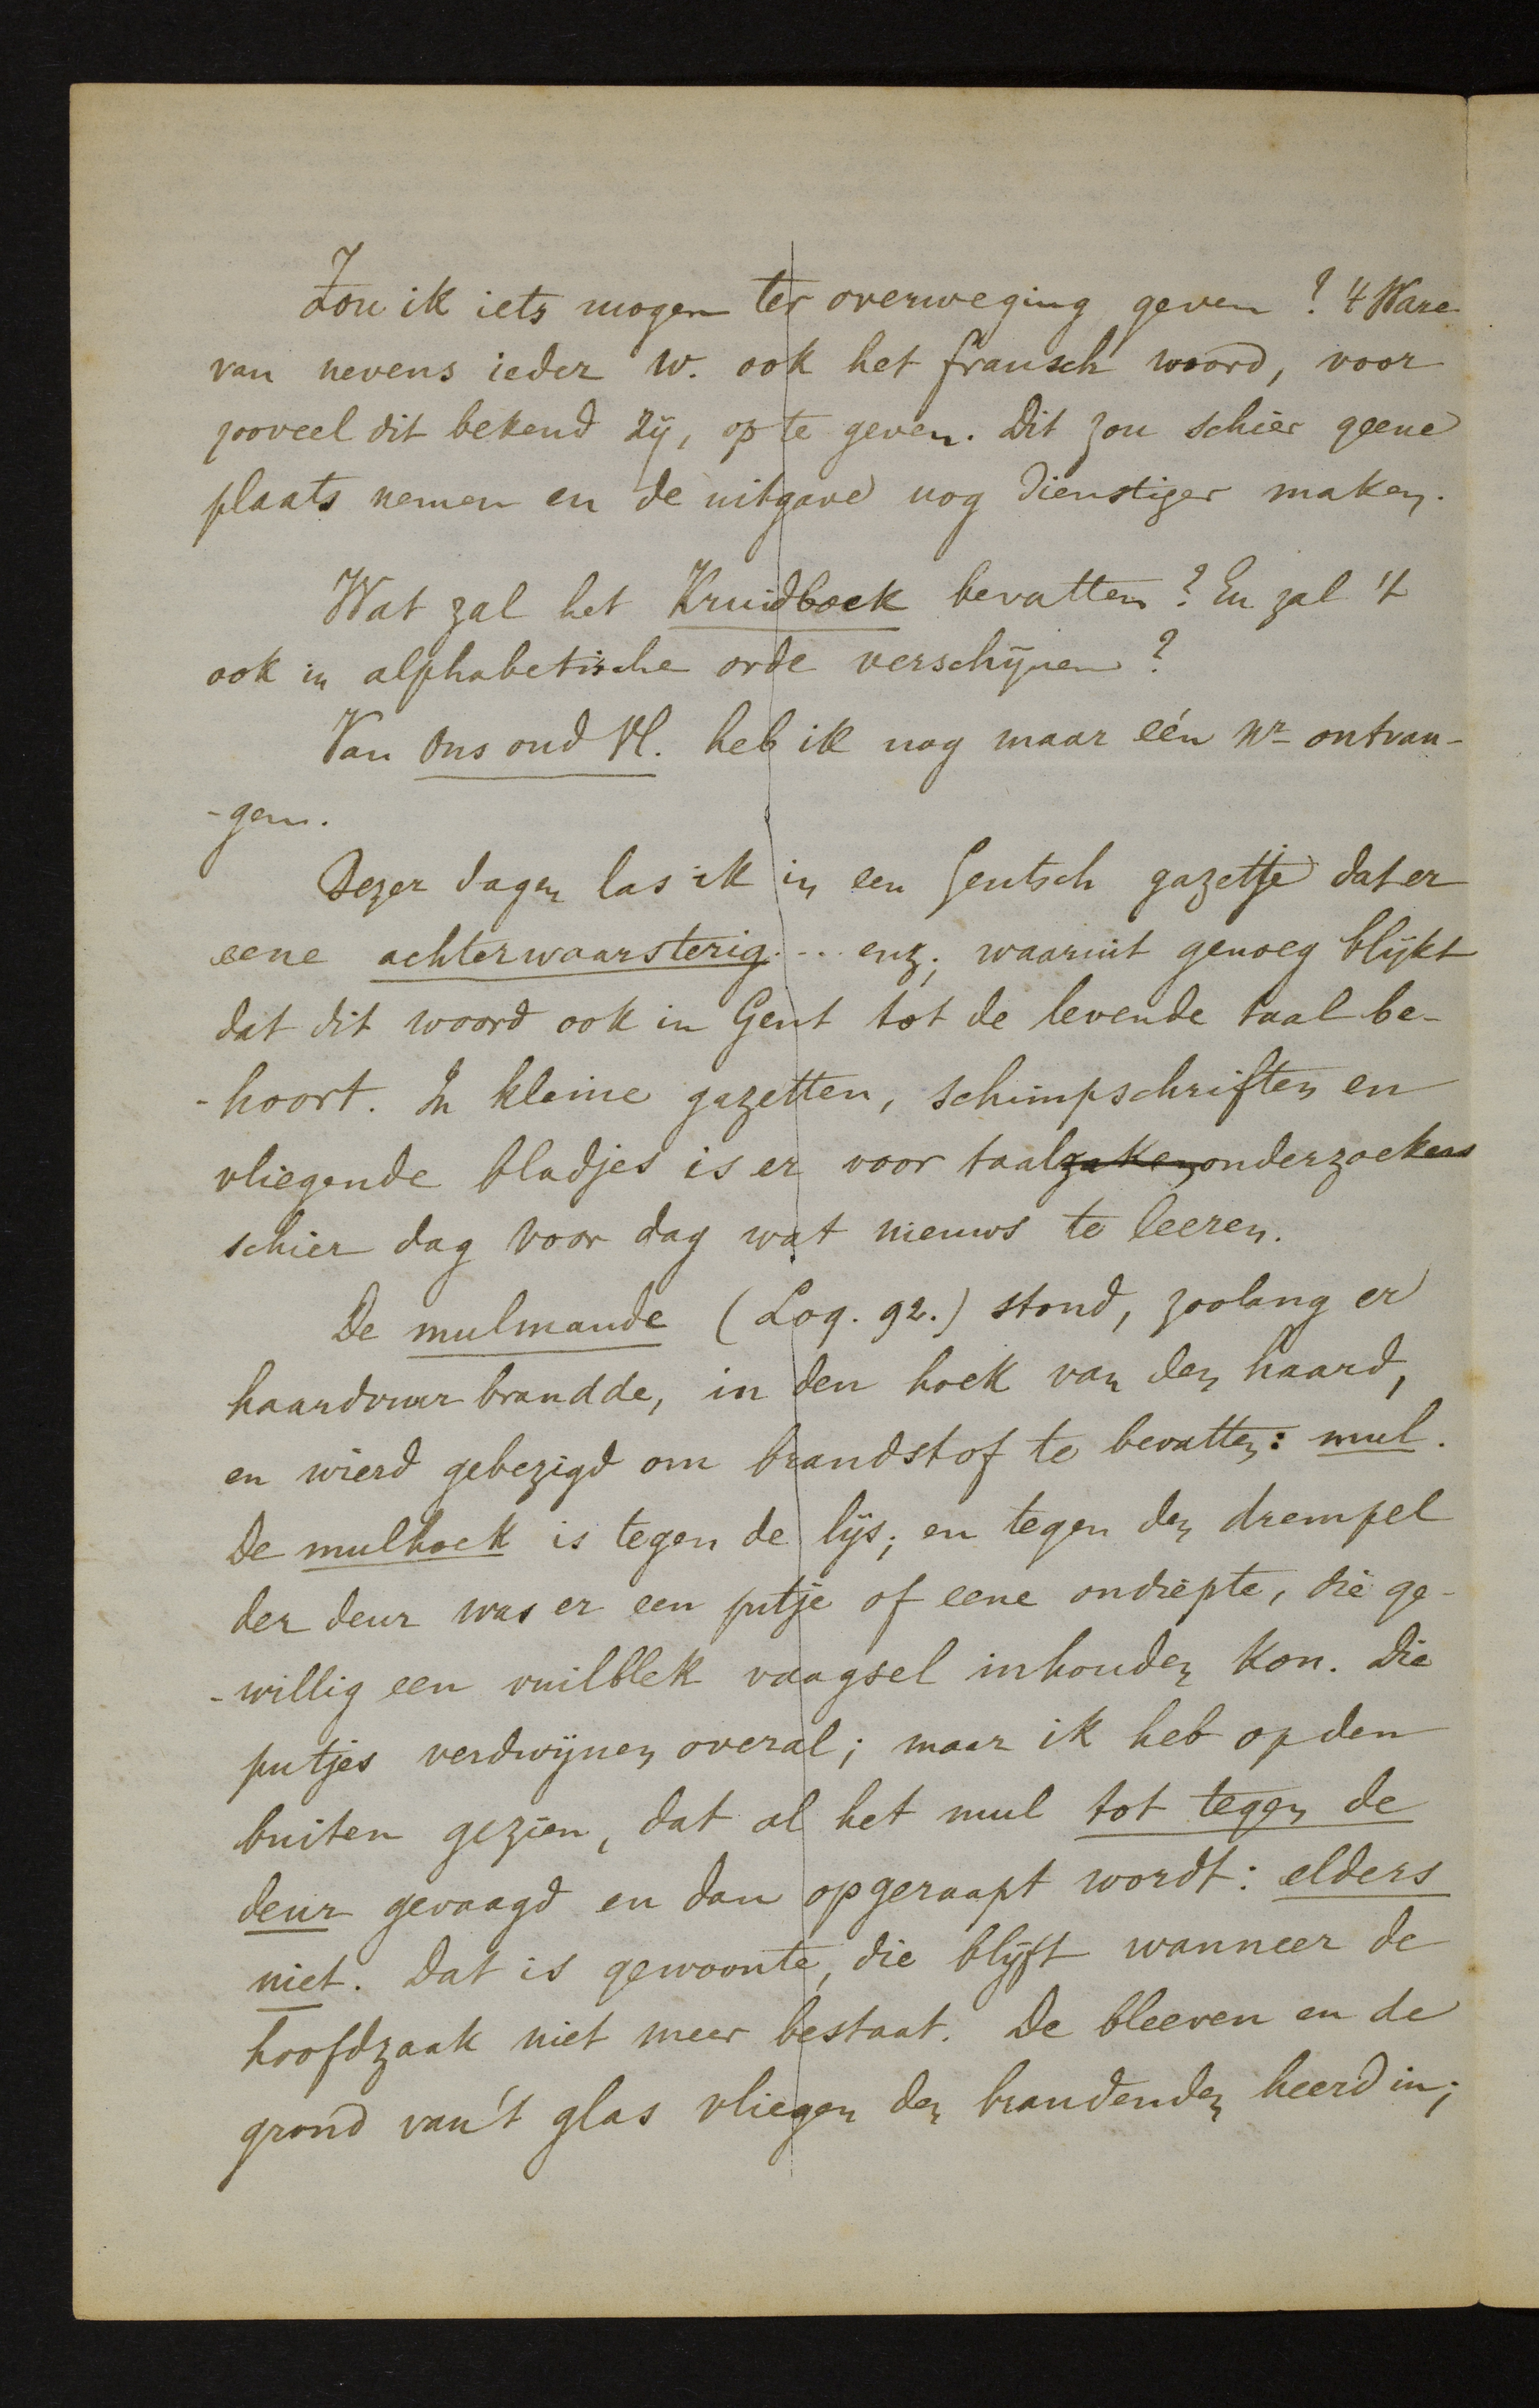 Zou ik iets mogen ter overweging geven? 't Ware
van nevens ieder w. ook het fransch woord, voor
zooveel dit bekend zij, op te geven. Dit zou schier geene
plaats nemen en de uitgave nog dienstiger maken.
Wat zal het Kruidboek bevatten? En zal 't
ook in alphabetische orde verschijnen?
Van Ons oud Vl. heb ik nog maar eén Nr ontvan-
-gen.
Dezer dagen las ik in een Gentsch gazetje dat er
eene achterwaarsterig... enz; waaruit genoeg blijkt
dat dit woord ook in Gent tot de levende taal be-
-hoort. In kleine gazetten, schimpschriften en
vliegende bladjes is er voor taalzakenonderzoekers
schier dag voor dag wat nieuws te leeren.
De mulmande (Loq. 92.) stond, zoolang er
haardvuur brandde, in den hoek van den haard,
en wierd gebezigd om brandstof te bevatten: mul.
De mulhoek is tegen de lijs; en tegen den drempel
der deur was er een putje of eene ondiepte, die ge-
-willig een vuilblek vaagsel inhouden kon. Die
putjes verdwijnen overal; maar ik heb op den
buiten gezien, dat al het mul tot tegen de
deur gevaagd en dan opgeraapt wordt: elders
niet. Dat is gewoonte, die blijft wanneer de
hoofdzaak niet meer bestaat. De bleeven en de
grond van 't glas vliegen den brandenden heerd in;